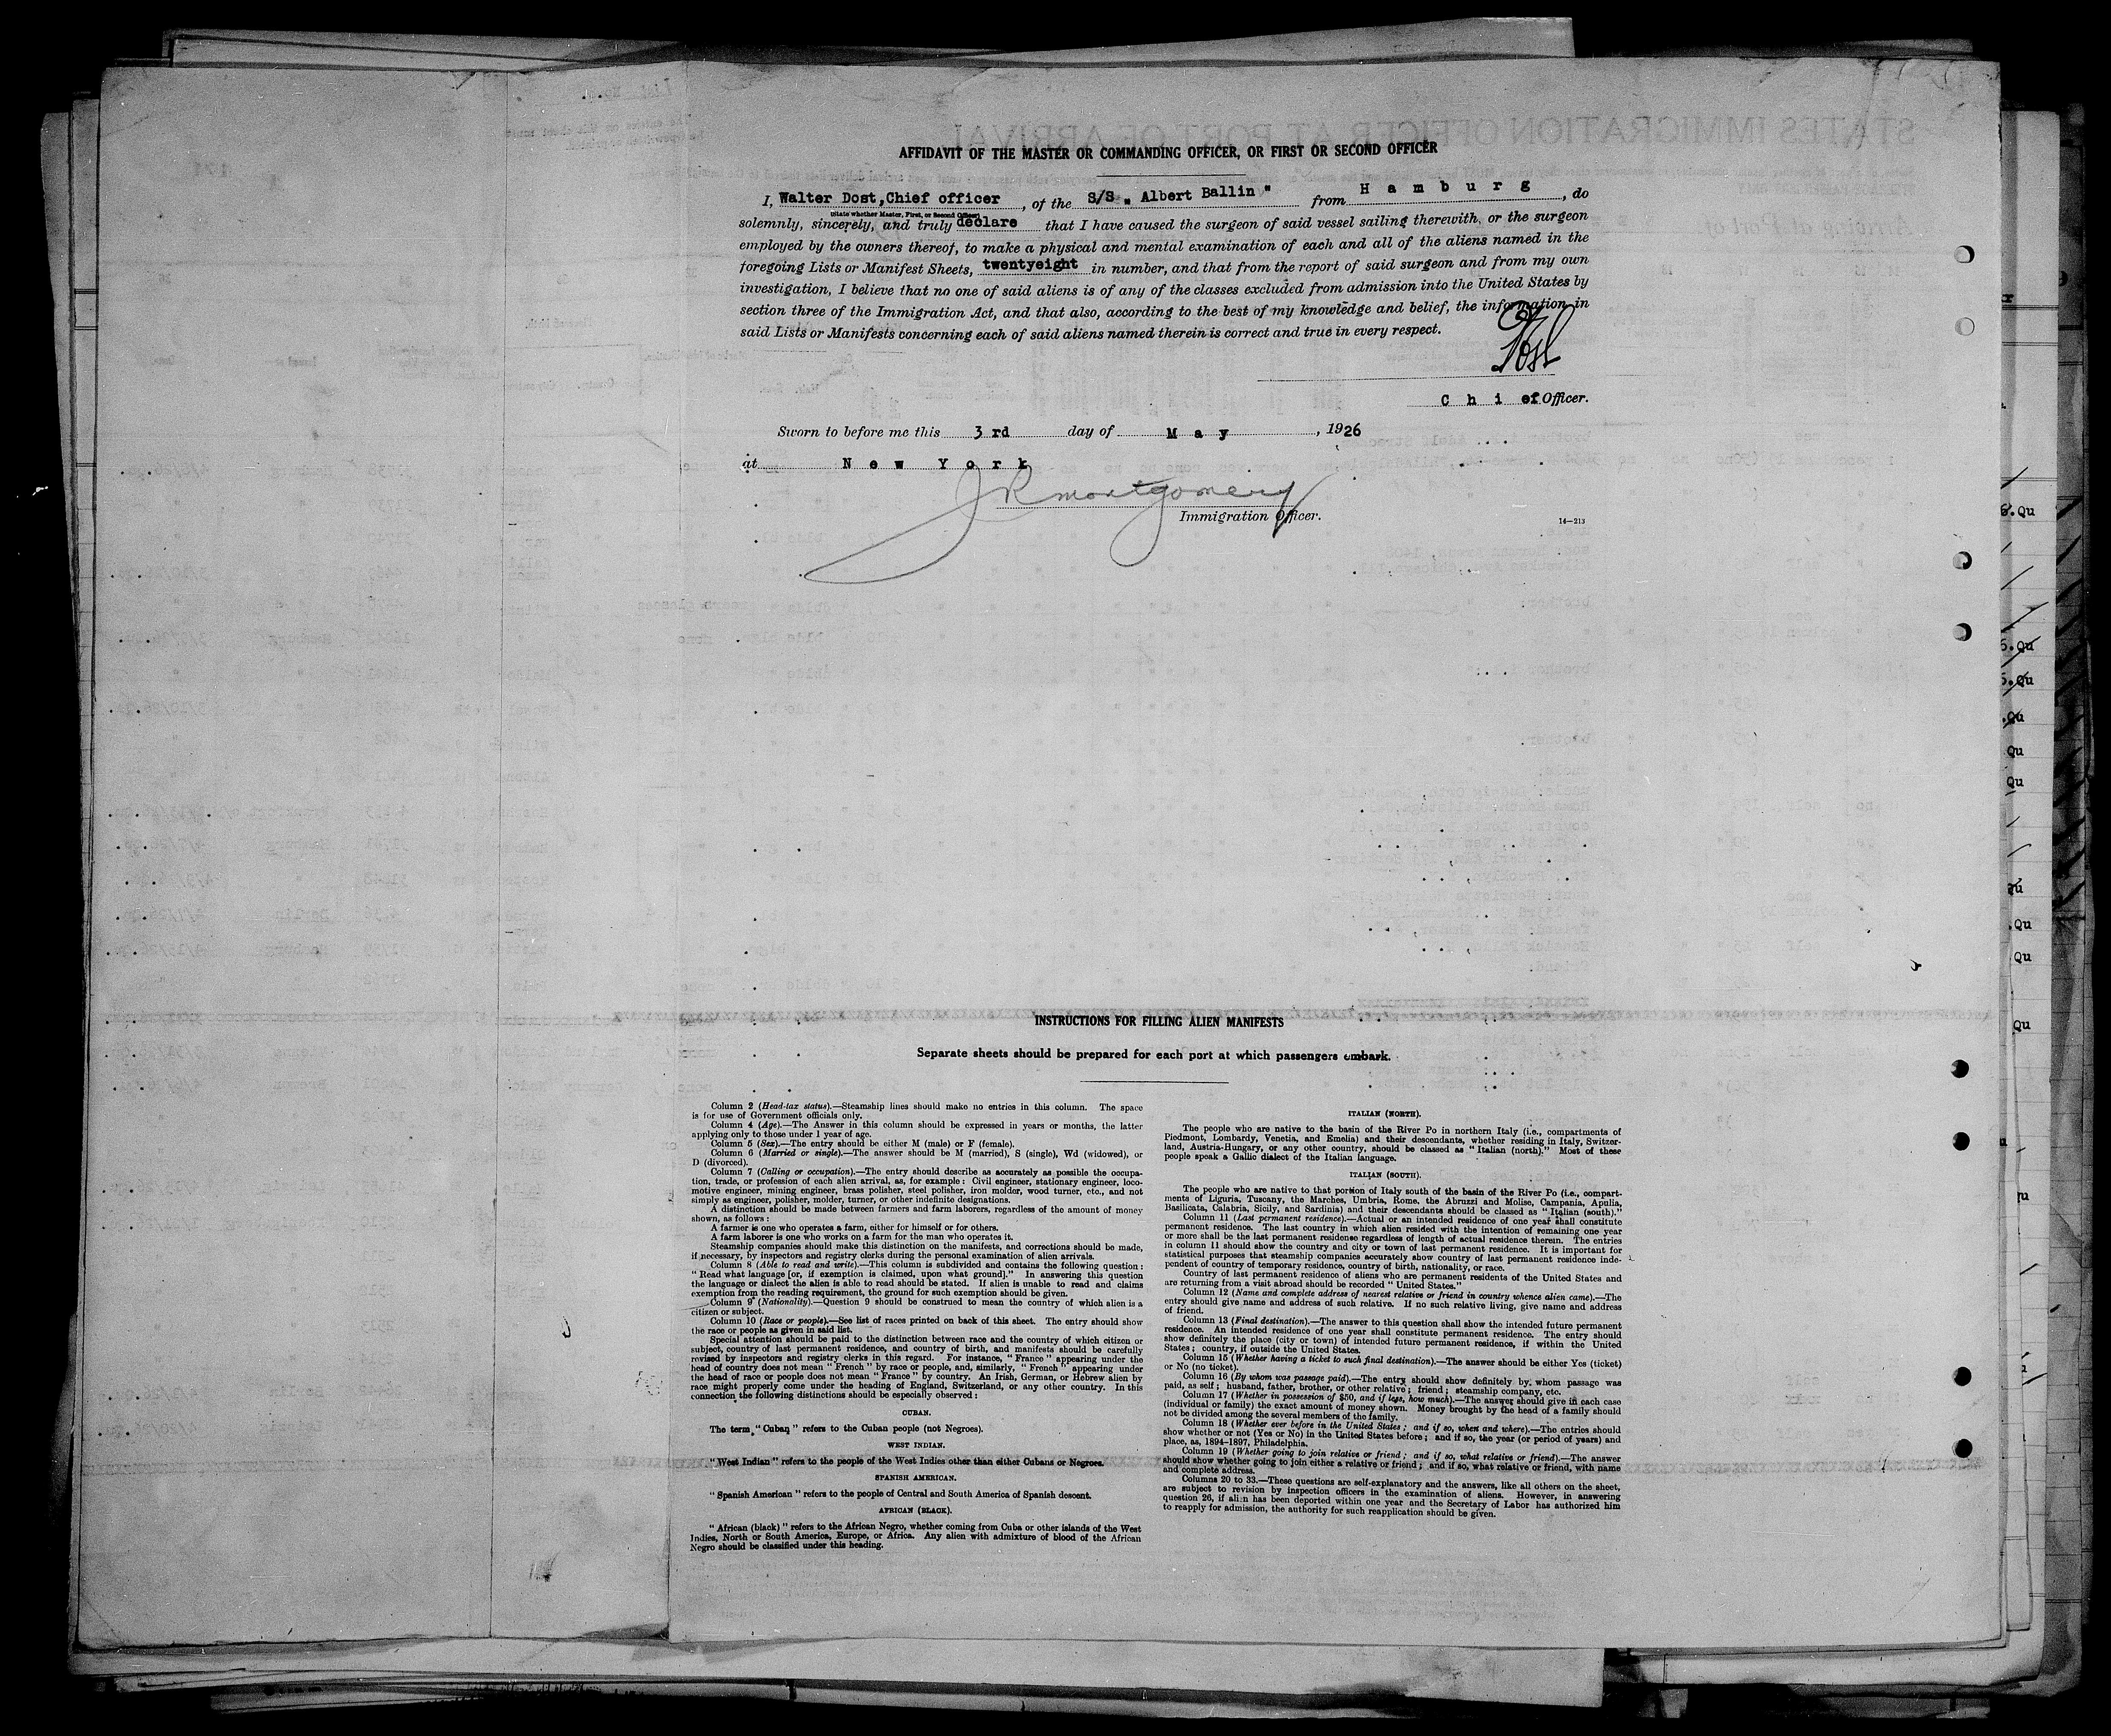 AFFIDAVIT OF THE MASTER OR COMMANDING OFFICER, OR FIRST OR SECOND OFFICER
I, Walter Dost, Chief officer, of the S/S „ Albert Ballin " from H a m b u r g, do
(State whether Master, First, or Second Officer)
solemnly, sincerely, and truly declare that I have caused the surgeon of said vessel sailing therewith, or the surgeon
employed by the owners thereof, to make a physical and mental examination of each and all of the aliens named in the
foregoing Lists or Manifest Sheets, twentyeight in number, and that from the report of said surgeon and from my own
investigation, I believe that no one of said aliens is of any of the classes excluded from admission into the United States by
section three of the Immigration Act, and that also, according to the best of my knowledge and belief, the information in
said Lists or Manifests concerning each of said aliens named therein is correct and true in every respect.
C h i ef Officer.
Sworn to before me this 3 rd day of M a y, 1926
at N e w Y o r k
J R Montgomery
Immigration Officer.
14—213
INSTRUCTIONS FOR FILLING ALIEN MANIFESTS
Separate sheets should be prepared for each port at which passengers embark.
Column 2 (Head-tax status).—Steamship lines should make no entries in this column. The space
is for use of Government officials only.
Column 4 (Age).—The Answer in this column should be expressed in years or months, the latter
applying only to those under 1 year of age.
Column 5 (Sex).—The entry should be either M (male) or F (female).
Column 6 (Married or single).—The answer should be M (married), S (single), Wd (widowed), or
D (divorced).
Column 7 (Calling or occupation).—The entry should describe as accurately as possible the occupa-
tion, trade, or profession of each alien arrival, as, for example: Civil engineer, stationary engineer, loco-
motive engineer, mining engineer, brass polisher, steel polisher, iron molder, wood turner, etc., and not
simply as engineer, polisher, molder, turner, or other indefinite designations.
A distinction should be made between farmers and farm laborers, regardless of the amount of money
shown, as follows:
A farmer is one who operates a farm, either for himself or for others.
A farm laborer is one who works on a farm for the man who operates it.
Steamship companies should make this distinction on the manifests, and corrections should be made,
if necessary, by inspectors and registry clerks during the personal examination of alien arrivals.
Column 8 (Able to read and write).—This column is subdivided and contains the following question:
"Read what language [or, if exemption is claimed, upon what ground]." In answering this question
the language or dialect the alien is able to read should be stated. If alien is unable to read and claims
exemption from the reading requirement, the ground for such exemption should be given.
Column 9 (Nationality).—Question 9 should be construed to mean the country of which alien is a
citizen or subject.
Column 10 (Race or people).—See list of races printed on back of this sheet. The entry should show
the race or people as given in said list.
Special attention should be paid to the distinction between race and the country of which citizen or
subject, country of last permanent residence, and country of birth, and manifests should be carefully
revised by inspectors and registry clerks in this regard. For instance, "France" appearing under the
head of country does not mean "French" by race or people, and, similarly, "French" appearing under
the head of race or people does not mean "France" by country. An Irish, German, or Hebrew alien by
race might properly come under the heading of England, Switzerland, or any other country. In this
connection the following distinctions should be especially observed:
CUBAN.
The term "Cuban" refers to the Cuban people (not Negroes).
WEST INDIAN.
"West Indian" refers to the people of the West Indies other than either Cubans or Negroes.
SPANISH AMERICAN.
"Spanish American" refers to the people of Central and South America of Spanish descent.
AFRICAN (BLACK).
"African (black)" refers to the African Negro, whether coming from Cuba or other islands of the West
Indies, North or South America, Europe, or Africa. Any alien with admixture of blood of the African
Negro should be classified under this heading.
ITALIAN (NORTH).
The people who are native to the basin of the River Po in northern Italy (i.e., compartments of
Piedmont, Lombardy, Venetia, and Emelia) and their descendants, whether residing in Italy, Switzer-
land, Austria-Hungary, or any other country, should be classed as "Italian (north)." Most of these
people speak a Gallic dialect of the Italian language.
ITALIAN (SOUTH).
The people who are native to that portion of Italy south of the basin of the River Po (i.e., compart-
ments of Liguria, Tuscany, the Marches, Umbria, Rome, the Abruzzi and Molise, Campania, Apulia,
Basilicata, Calabria, Sicily, and Sardinia) and their descendants should be classed as "Italian (south)."
Column 11 (Last permanent residence).—Actual or an intended residence of one year shall constitute
permanent residence. The last country in which alien resided with the intention of remaining one year
or more shall be the last permanent residense regardless of length of actual residence therein. The entries
in column 11 should show the country and city or town of last permanent residence. It is important for
statistical purposes that steamship companies accurately show country of last permanent residence inde-
pendent of country of temporary residence, country of birth, nationality, or race.
Country of last permanent residence of aliens who are permanent residents of the United States and
are returning from a visit abroad should be recorded "United States."
Column 12 (Name and complete address of nearest relative or friend in country whence alien came).—The
entry should give name and address of such relative. If no such relative living, give name and address
of friend.
Column 13 (Final destination).—The answer to this question shall show the intended future permanent
residence. An intended residence of one year shall constitute permanent residence. The entry should
show definitely the place (city or town) of intended future permanent residence, if within the United
States; country, if outside the United States.
Column 15 (Whether having a ticket to such final destination).—The answer should be either Yes (ticket)
or No (no ticket).
Column 16 (By whom was passage paid).—The entry should show definitely by whom passage was
paid, as self; husband, father, brother, or other relative; friend; steamship company, etc.
Column 17 (Whether in possession of $50, and if less, how much).—The answer should give in each case
(individual or family) the exact amount of money shown. Money brought by the head of a family should
not be divided among the several members of the family.
Column 18 (Whether ever before in the United States; and if so, when and where).—The entries should
show whether or not (Yes or No) in the United States before; and if so, the year (or period of years) and
place, as, 1894–1897, Philadelphia.
Column 19 (Whether going to join relative or friend; and if so, what relative or friend).—The answer
should show whether going to join either a relative or friend; and if so, what relative or friend, with name
and complete address.
Columns 20 to 33.—These questions are self-explanatory and the answers, like all others on the sheet,
are subject to revision by inspection officers in the examination of aliens. However, in answering
question 26, if alien has been deported within one year and the Secretary of Labor has authorized him
to reapply for admission, the authority for such reapplication should be given.